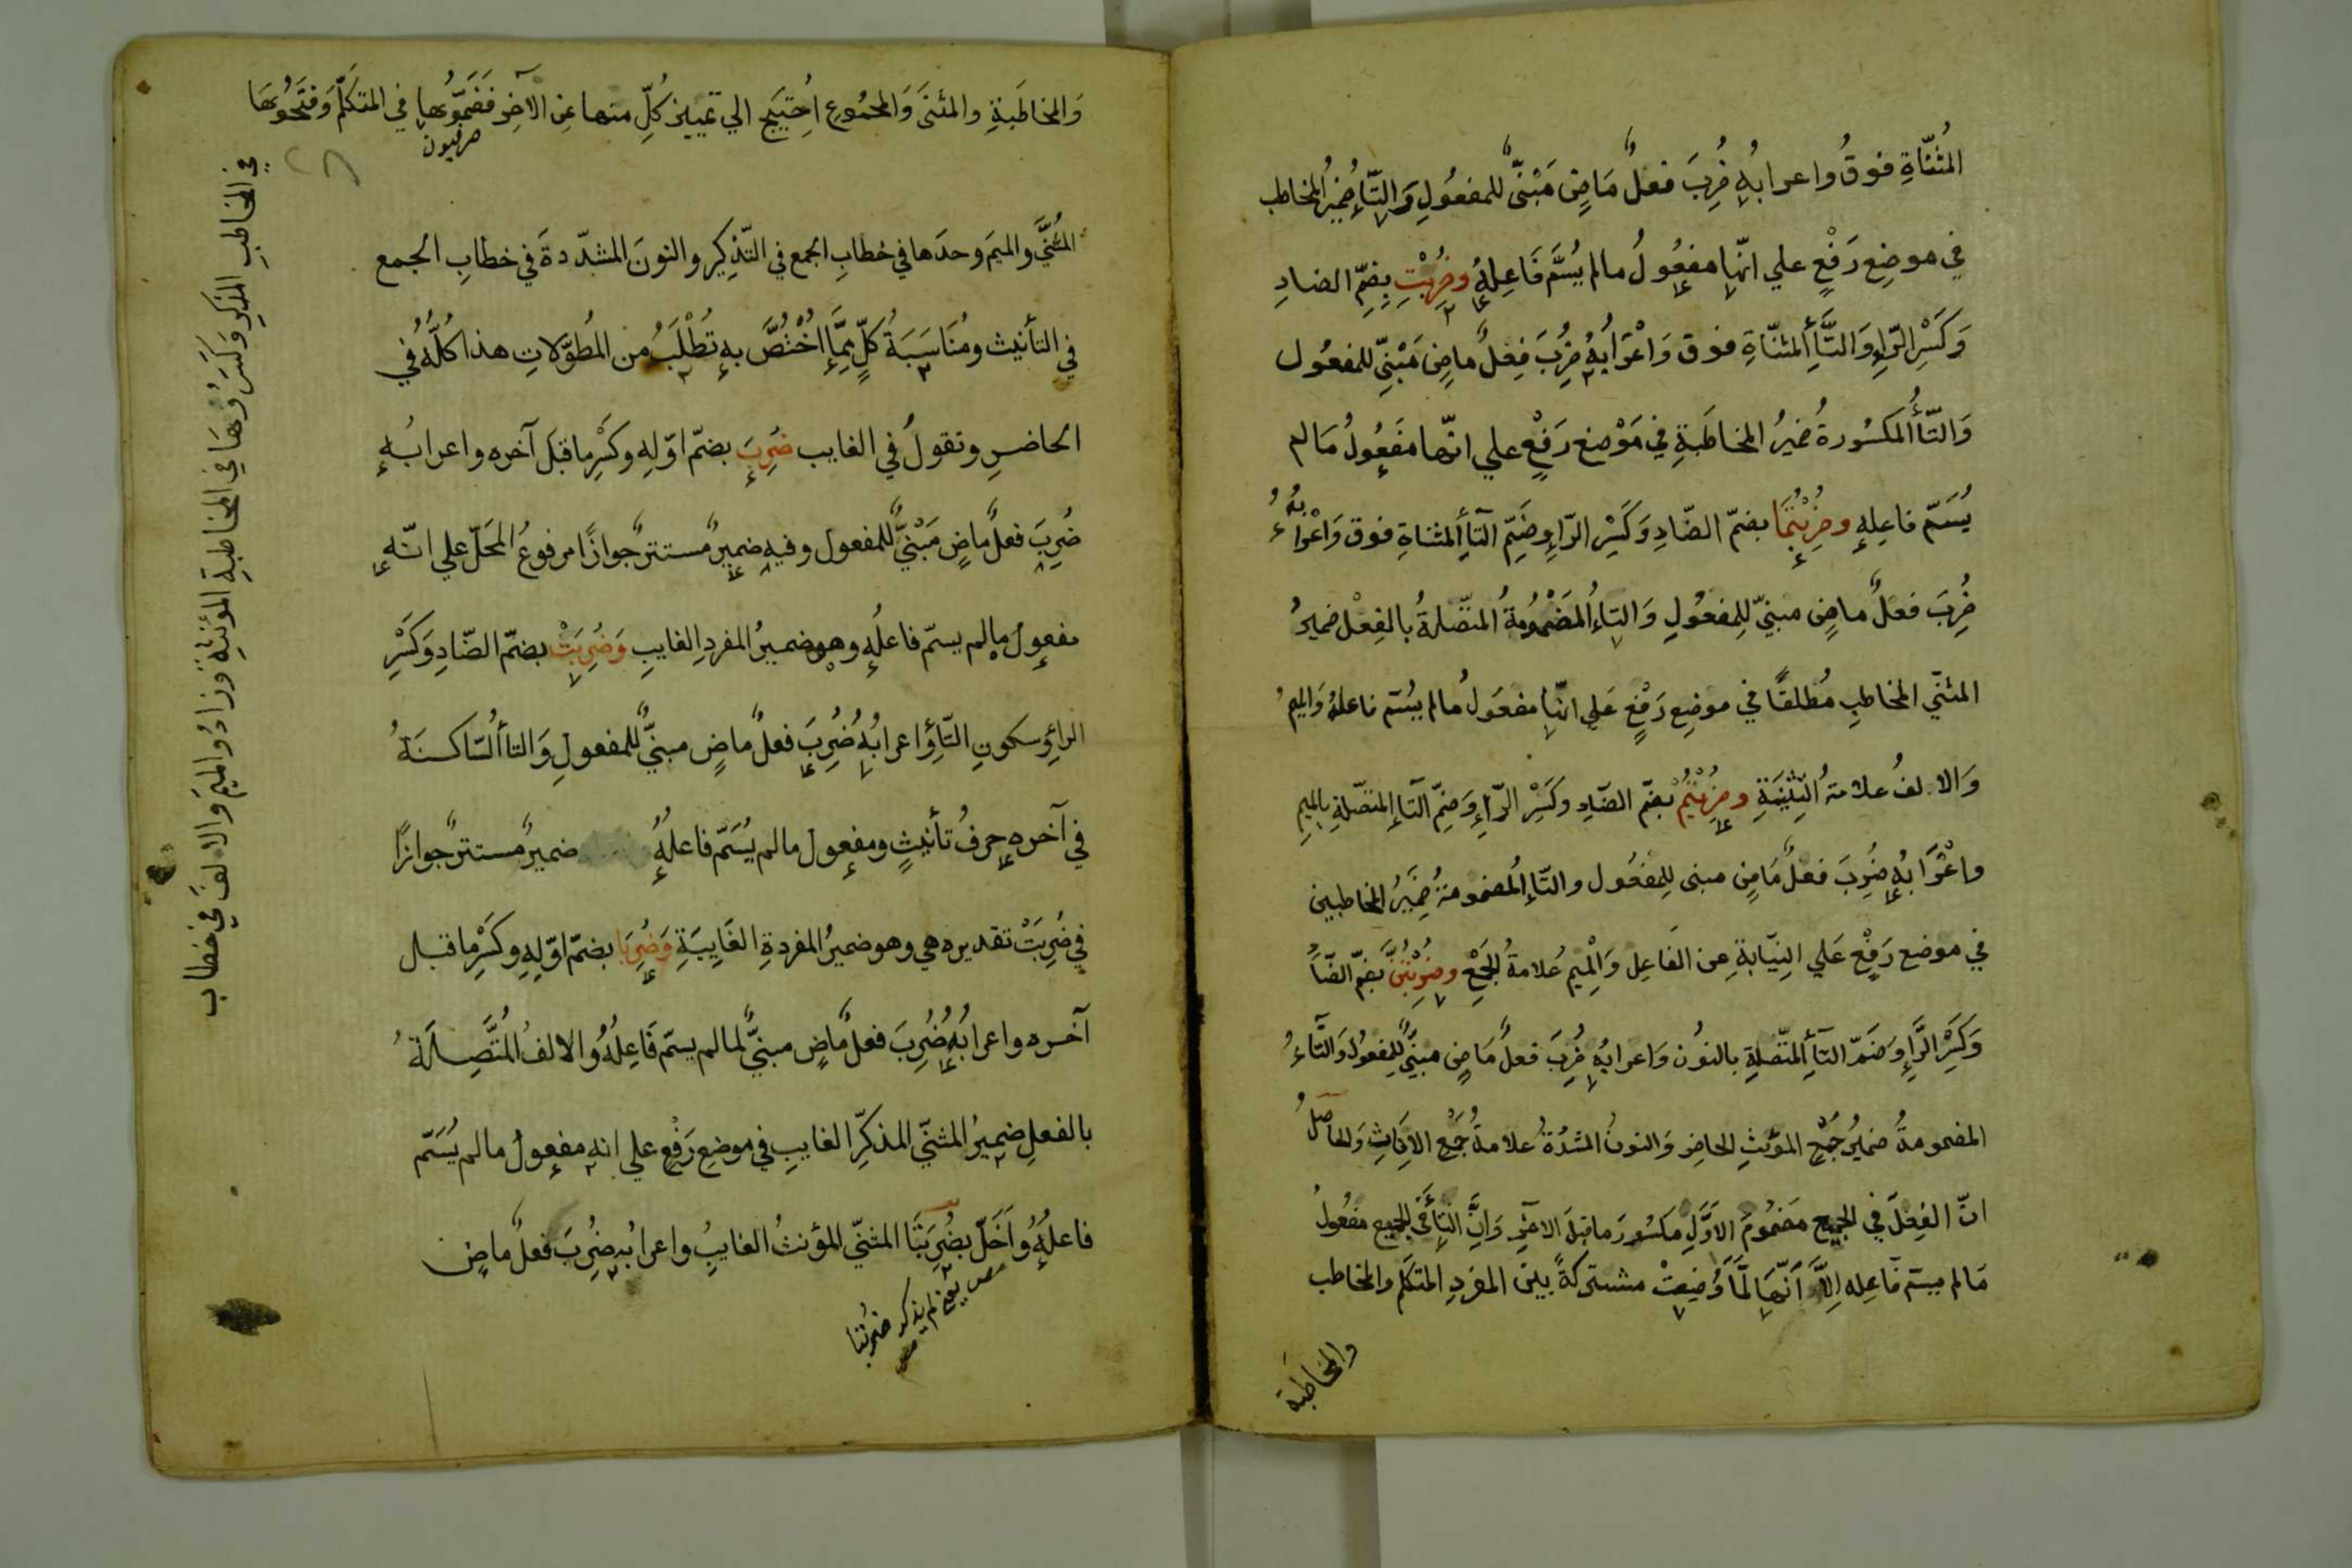 المُثَنّاةِ فوقُ واعرابُهِ ضُرِبَ فعلٌ مَاضٍ مَبْنىٌّ للمفعُولِ وَالتّاُ ضميرُ المخاطب
في موضِعِ رَفْعٍ علي انّها مفعُولُ مالم يُسَمَّ فَاعِلهُ وضُرِبْتِ بِضمّ الضادِ
وَكَسْرِ الرّاءِ وَالتّاءِ المثنّاةِ فوق وَاعْرَابُهُ ضُرِبَ فِعْلٌ ماضٍ مَبْنيّ للمفعُول
وَالتّاُ المكسُورةُ ضميرُ المخاطَبةِ في مَوْضع رَفْعٍ علي انّها مفعُولُ مَالم
يُسَمّ فاعِلهِ وضُرِبْتُمَا بضمّ الضّادِ وَكَسْرِ الرّاءِ وضَمّ التآءِ المثناةِ فوق وَاعْرابُهُ
ضُرِبَ فعلٌ ماضٍ مبنيّ لِلمفعُولِ وَالتاءُ المَضْمُومَةُ المتّصلةُ بالفِعْل ضميرُ
المثنّي المخاطبِ مُطلقًا في موضِع رَفْعٍ عَلي انّها مفعُولُ مالم يُسَمّ فاعلهُ وَالميمُ
وَالالفُ علامةُ التّثنِيَةِ وضُرِبْتُمْ بضمّ الضّادِ وكَسْرِ الرّاءِ وَضمّ التآءِ المتّصلةِ بالميمِ
واعْرَابُهُ ضُرِبَ فعلٌ مَاضٍ مبنى لِلمفعُول والتّاءُ المضمومةُ ضَمِيرُ المخاطبين
في موضع رَفْعٍ عَلي النِيّابةِ عن الفَاعِل وَالْمِيم عَلامةُ الجَمْعِ وضُرِبْتُنَّ بضمّ الضّاد
وَكَسْرِ الرَّاءِ وَضَمّ التآءِ المتّصلةِ بالنوُن وَاعرابُهِ ضُرِبَ فعلٌ مَاضٍ مبنيٌّ للمفعُول وَالتّاءُ
المضمومةُ ضميرُ جَمْعِ المؤنثِ الحاضِرِ وَالنونُ المشدّةُ علامةُ جَمْع الاِنَاثِ وَالحَاصلُ
انّ الفِعْلَ في الجميع مَضمُومُ الاَوّلِ مكسُورَ ماقبلَ الاخرِ وَانّ التّاءَ في الجميع مفعُولُ
مَالم يسمّ فاعِله اِلاّ اَنّهَا لَمَّا وُضِعتْ مشتركةً بين المفردِ المتكلم والمخاطب
والمخاطَبة
وَالمخاطَبةِ والمثنَى وَالمجْمُوعِ اُحْتِيَج الي تمييز كُلٍّ منها عن الآخرِ فَضَمُّوها في المتكلّمِ وَفتحُوهَا
صرفيون
في المخاطبِ المذكرِ وَكسَرُوْهَا في المخاطبةِ المؤنثةِ وَزادُوا الميمَ وَالالفَ في خطاب
المُثَنّي والميمَ وحدَها في خطابِ الجمع في التّذكِير والنونَ المشدّدةَ في خطابِ الجمع
في التأنيث ومُنَاسَبَةُ كلّ ممَّا اخْتُصَّ بهِ تُطْلَبُ من المُطوّلاتِ هذا كُلُّهُ في
الحاضرِ وتقولُ في الغايب ضُرِبَ بضمّ اوّلهِ وكسْرِ ماقبلَ آخره واعرابُهِ
ضُرِبَ فعلٌ ماضٍ مَبْنيٌّ للمفعول وفيهِ ضميرٌ مستترٌ جوازًا مرفوعُ المحَلّ علي انّهِ
مفعولُ مالم يسمّ فاعلُهِ وهو ضميرُ المفردِ الغايبِ وَضُرِبَتْ بضمّ الضّادِ وَكَسْرِ
الراءِ وسكونِ التّاءِ واعرابُهُ ضُرِبَ فعلٌ ماضٍ مبنيٌّ للمفعولِ وَالتاءُ السّاكنةُ
في آخرهِ حرفُ تأنيثٍ ومفعول مالم يُسَمّ فاعلُهُ ضميرٌ مستترٌ جوازًا
في ضُرِبَتْ تقديره هي وهو ضميرُ المفردةِ الغَايِبَةِ وَضُرِبَا بضمّ اوّلِهِ وكَسْرِ ماقبل
آخره واعرابُهُ ضُرِبَ فعلٌ ماضٍ مبنيٌّ لمالم يسمّ فَاعِلُهُ والالفُ المُتَّصِلَةُ
بالفعلِ ضميرُ المثنّي المذكّرِ الغايبِ في موضعِ رَفْعٍ علي انهِ مفعولُ مالم يُسَمّ
فاعلُهُ وَاَخَلّ بضُرِبَتَا المثنّي المؤنثُ الغايبُ واعرابُه ضُرِبَ فعلٌ ماضٍ
مص يعني لم يذكر ضربتا
مص